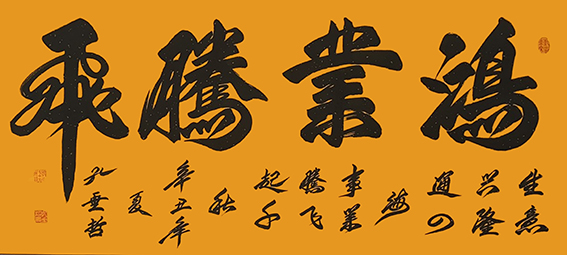 鴻業騰飛
生意
兴隆
通四
海
事業
騰飞
起千
秋
辛丑年
夏
孔垂哲